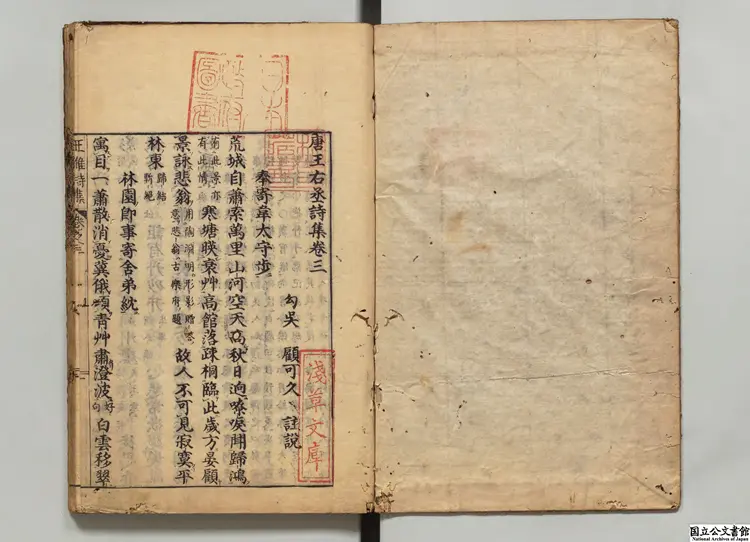 唐王右丞詩集卷三
勾吳 顧可久 註說
奉寄韋太守陟
荒城自蕭索萬里山河空天高秋日迥嘹唳聞歸鴻
有此景亦有此情 寒塘暎衰艸高館落疎桐臨此歲方晏顧
景詠悲翁 意悲翁古樂府題 故人不可見寂寞平
林東 歸結斬絕
林園即事寄舍弟紞
寓目一蕭散消憂冀俄頃青艸肅澄波 白雲移翠
王維詩集
淺草文庫
国立公文書館
National Archives of Japan